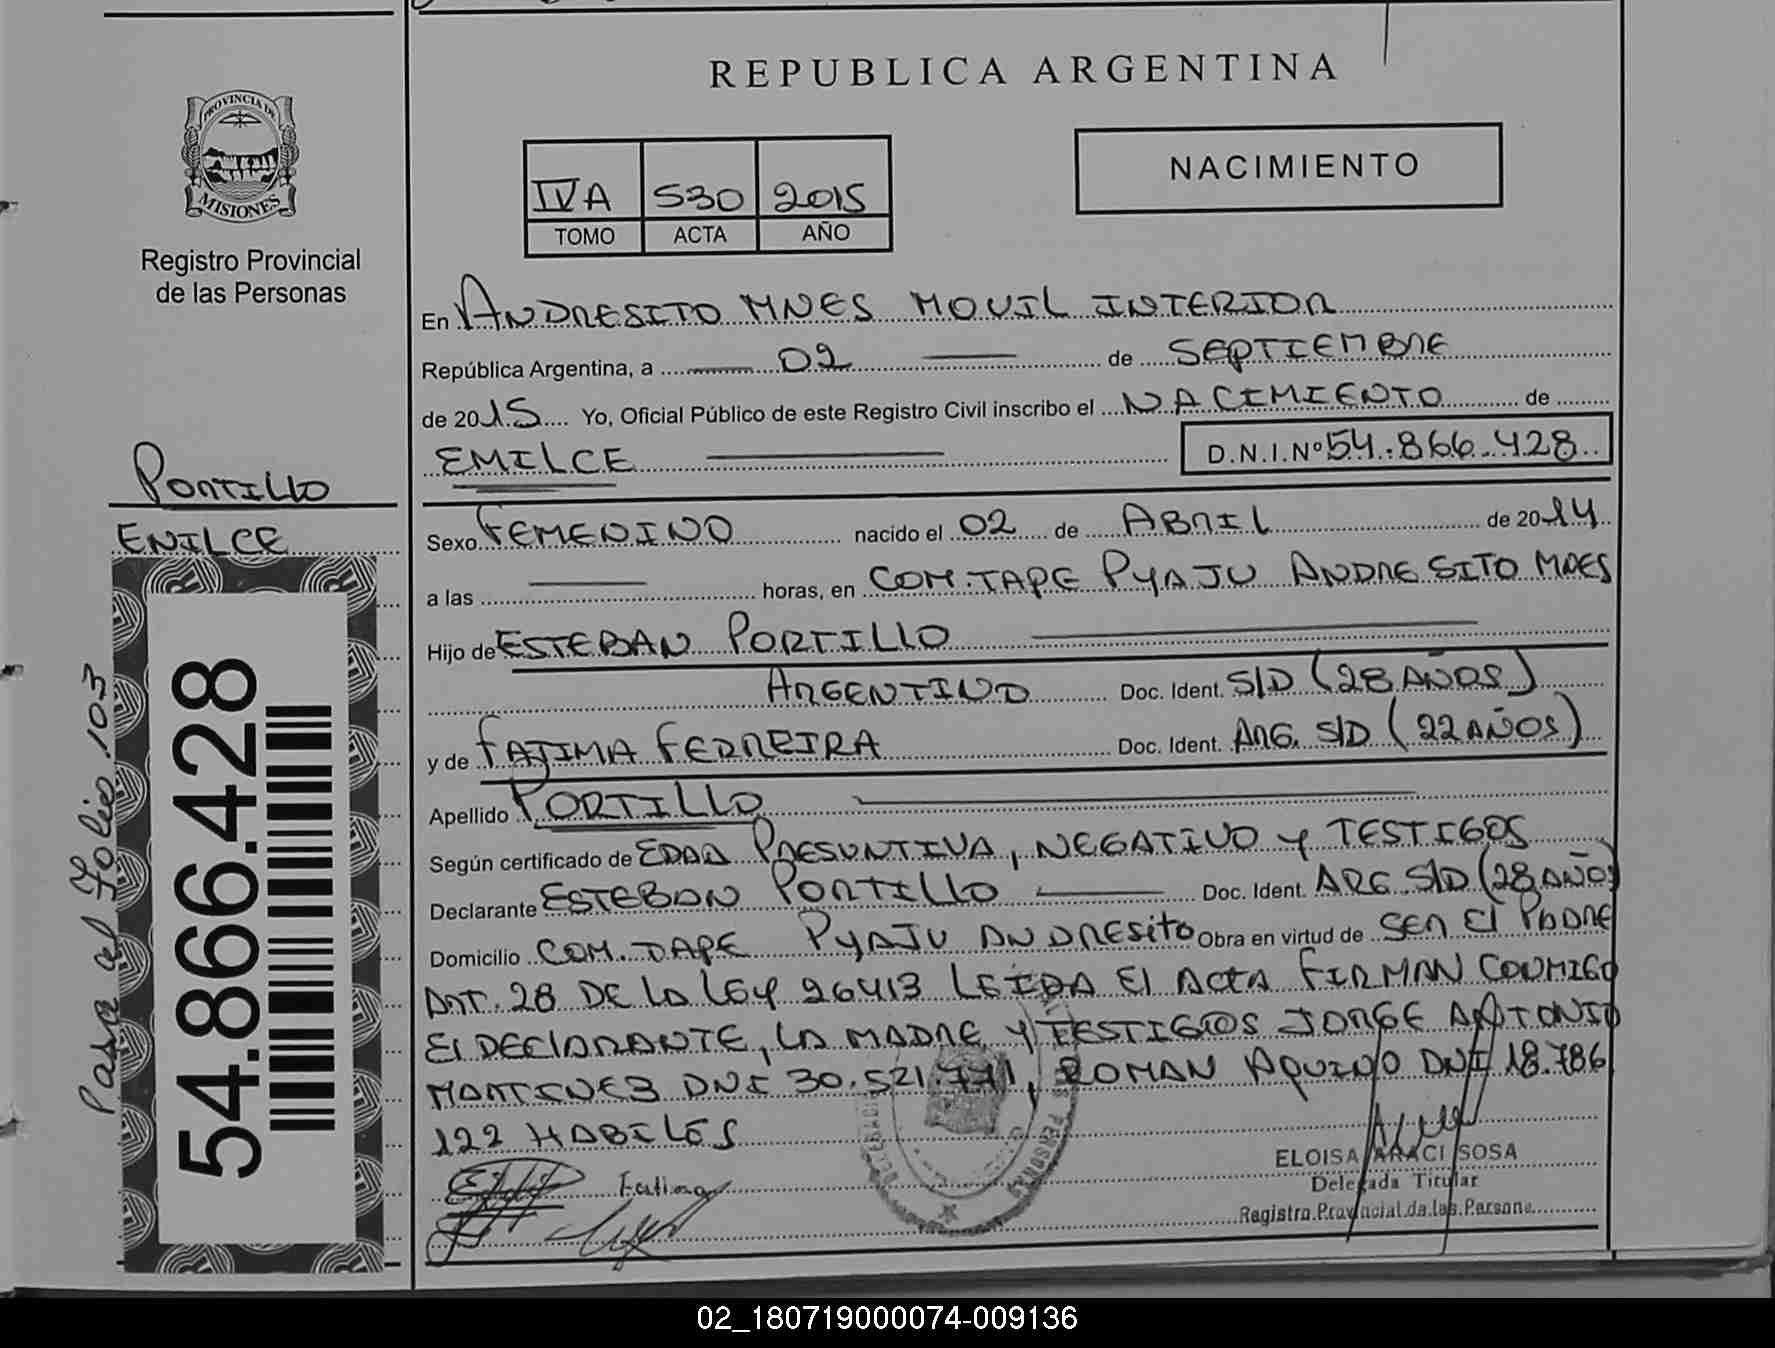 REPUBLICA ARGENTINA
PROVINCIA DE
MISIONES
Registro Provincial
de las Personas
NACIMIENTO
IVA 530 2015
TOMO ACTA AÑO
En ANDRESITO MNES MOVIL INTERIOR
República Argentina, a 02 de SEPTIEMBRE
de 2015 Yo, Oficial Público de este Registro Civil inscribo el NACIMIENTO de
EMILCE D.N.I.Nº 54.866.428
PORTILLO
EMILCE
Sexo FEMENINO nacido el 02 de ABRIL de 2014
a las horas, en COM. TAPE PYAJU ANDRESITO MNES
Hijo de ESTEBAN PORTILLO
ARGENTINO Doc. Ident. S/D (28 AÑOS)
y de FATIMA FERREIRA Doc. Ident. ARG. S/D (22 AÑOS)
Apellido PORTILLO
Según certificado de EDAD PRESUNTIVA, NEGATIVO Y TESTIGOS
Declarante ESTEBAN PORTILLO Doc. Ident. ARG S/D (28 AÑOS
Domicilio COM. TAPE PYAJU ANDRESITO Obra en virtud de SER El PADRE
ART. 28 DE LA LEY 26413 LEIDA El ACTA FIRMAN CONMIGO
El DECLARANTE, LA MADRE Y TESTIGOS JORGE ANTONIO
MARTINEZ DNI 30.521.771, ROMAN AQUINO DNI 18.786
122 HABILES
Fatima
ELOISA ARACI SOSA
Delegada Titular
Registro Provincial de las Persona
54.866.428
Pasa al Folio 103
02_180719000074-009136